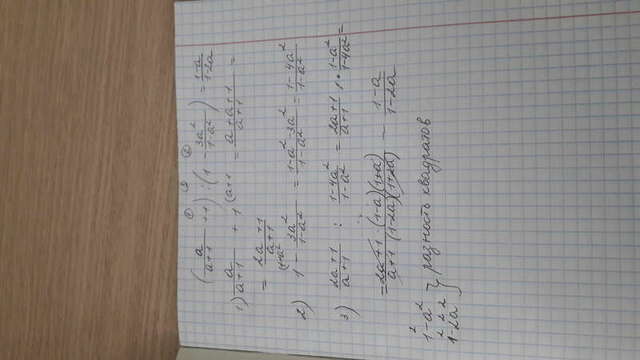 ① ③ ②
(a/(a+1) + 1) : (1 - 3a²/(1-a²)) = (1-a)/(1-2a)
1) a/(a+1) + 1 (a+1 = (a+a+1)/(a+1) =
= (2a+1)/(a+1)
2) 1 (1-a² - 3a²/(1-a²) = (1-a²-3a²)/(1-a²) = (1-4a²)/(1-a²)
3) (2a+1)/(a+1) : (1-4a²)/(1-a²) = (2a+1)/(a+1) · (1-a²)/(1-4a²) =
= (2a+1)/(a+1) (1-a)(1+a)/(1-2a)(1+2a) - (1-a)/(1-2a)
1²-a²
1²-2²a² } разность квадратов